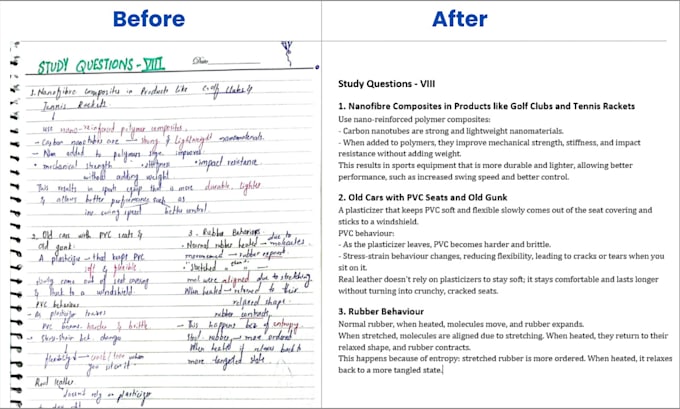 Before
After
STUDY QUESTIONS - VIII
Date
1. Nanofibre Composites in Products like Golf Clubs &
Tennis Rackets
use nano-reinforced polymer composites.
- Carbon nanotubes are → strong & lightweight nanomaterials.
- added to polymers improved
• mechanical strength • stiffness • impact resistance
without adding weight
This results in sports equip that is more durable, lighter
& allows better performance such as
inc. swing speed better control.
2. Old cars with PVC seats &
old gunk.
A plasticizer - that keeps PVC
soft & flexible.
slowly come out of seat covering
& to a windshield
PVC behaviour
- As plasticizer leaves
PVC harder & brittle
- Stress-strain change
flexibility → when
you sit on it.
Real leather
doesn't rely on plasticizer
3. Rubber Behaviour
• Normal rubber heated → molecules
movement → rubber expand.
• Stretched
mol. were aligned due to stretching
When heated → returned to their
relaxed shape
rubber contracts
- This happens bcz of entropy
rubber → more ordered
When heated it relaxes back to
more tangled state
Study Questions - VIII
1. Nanofibre Composites in Products like Golf Clubs and Tennis Rackets
Use nano-reinforced polymer composites:
- Carbon nanotubes are strong and lightweight nanomaterials.
- When added to polymers, they improve mechanical strength, stiffness, and impact
resistance without adding weight.
This results in sports equipment that is more durable and lighter, allowing better
performance, such as increased swing speed and better control.
2. Old Cars with PVC Seats and Old Gunk
A plasticizer that keeps PVC soft and flexible slowly comes out of the seat covering and
sticks to a windshield.
PVC behaviour:
- As the plasticizer leaves, PVC becomes harder and brittle.
- Stress-strain behaviour changes, reducing flexibility, leading to cracks or tears when you
sit on it.
Real leather doesn't rely on plasticizers to stay soft; it stays comfortable and lasts longer
without turning into crunchy, cracked seats.
3. Rubber Behaviour
Normal rubber, when heated, molecules move, and rubber expands.
When stretched, molecules are aligned due to stretching. When heated, they return to their
relaxed shape, and rubber contracts.
This happens because of entropy: stretched rubber is more ordered. When heated, it relaxes
back to a more tangled state.